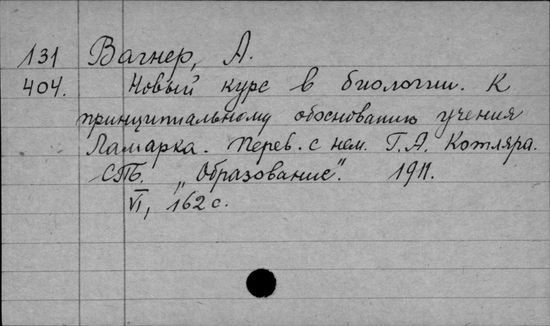 131 Вагнер, А.
404. Новый курс в биологии. К
принципиальному обоснованию учения
Ламарка. Перев. с нем. Г. А. Котляра.
СПБ. „Образование". 1911.
VI, 162 с.